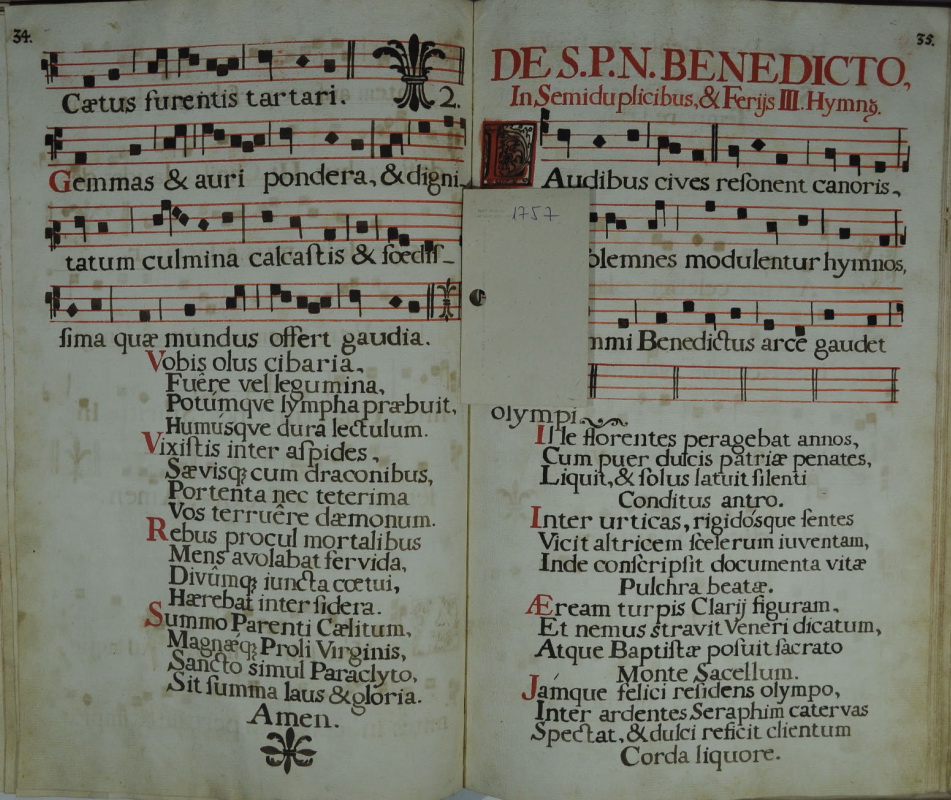 34.
Cætus furentis tartari. 2.
Gemmas & auri pondera, & digni_
tatum culmina calcaſtis & fœdiſſ_
ſima quæ mundus offert gaudia.
Vobis olus cibaria,
Fuêre vel legumina,
Potúmqve lympha præbuit,
Humúsqve dura lectulum.
Vixiſtis inter aſpides,
Sævisqꝫ cum draconibus,
Portenta nec teterima
Vos terruêre dæmonum.
Rebus procul mortalibus
Mens avolabat fervida,
Divûmqꝫ iuncta cœtui,
Hærebat inter ſidera.
Summo Parenti Cælitum,
Magnæqꝫ Proli Virginis,
Sancto simul Paraclyto,
Sit ſumma laus & gloria.
Amen.
35.
DE S.P.N. BENEDICTO,
In Semiduplicibus, & Ferijs III. Hymnꝫ.
LAudibus cives reſonent canoris,
1757
olemnes modulentur hymnos,
mmi Benedictus arce gaudet
olympi.
Ille florentes peragebat annos,
Cum puer dulcis patriæ penates,
Liquit, & ſolus latuit ſilenti
Conditus antro.
Inter urticas, rigidósque ſentes
Vicit altricem ſcelerum iuventam,
Inde conſcripſit documenta vitæ
Pulchra beatæ.
Æream turpis Clarij figuram,
Et nemus stravit Veneri dicatum,
Atque Baptiſtæ poſuit ſacrato
Monte Sacellum.
Jamque felici reſidens olympo,
Inter ardentes Seraphim catervas
Spectat, & dulci reficit clientum
Corda liquore.